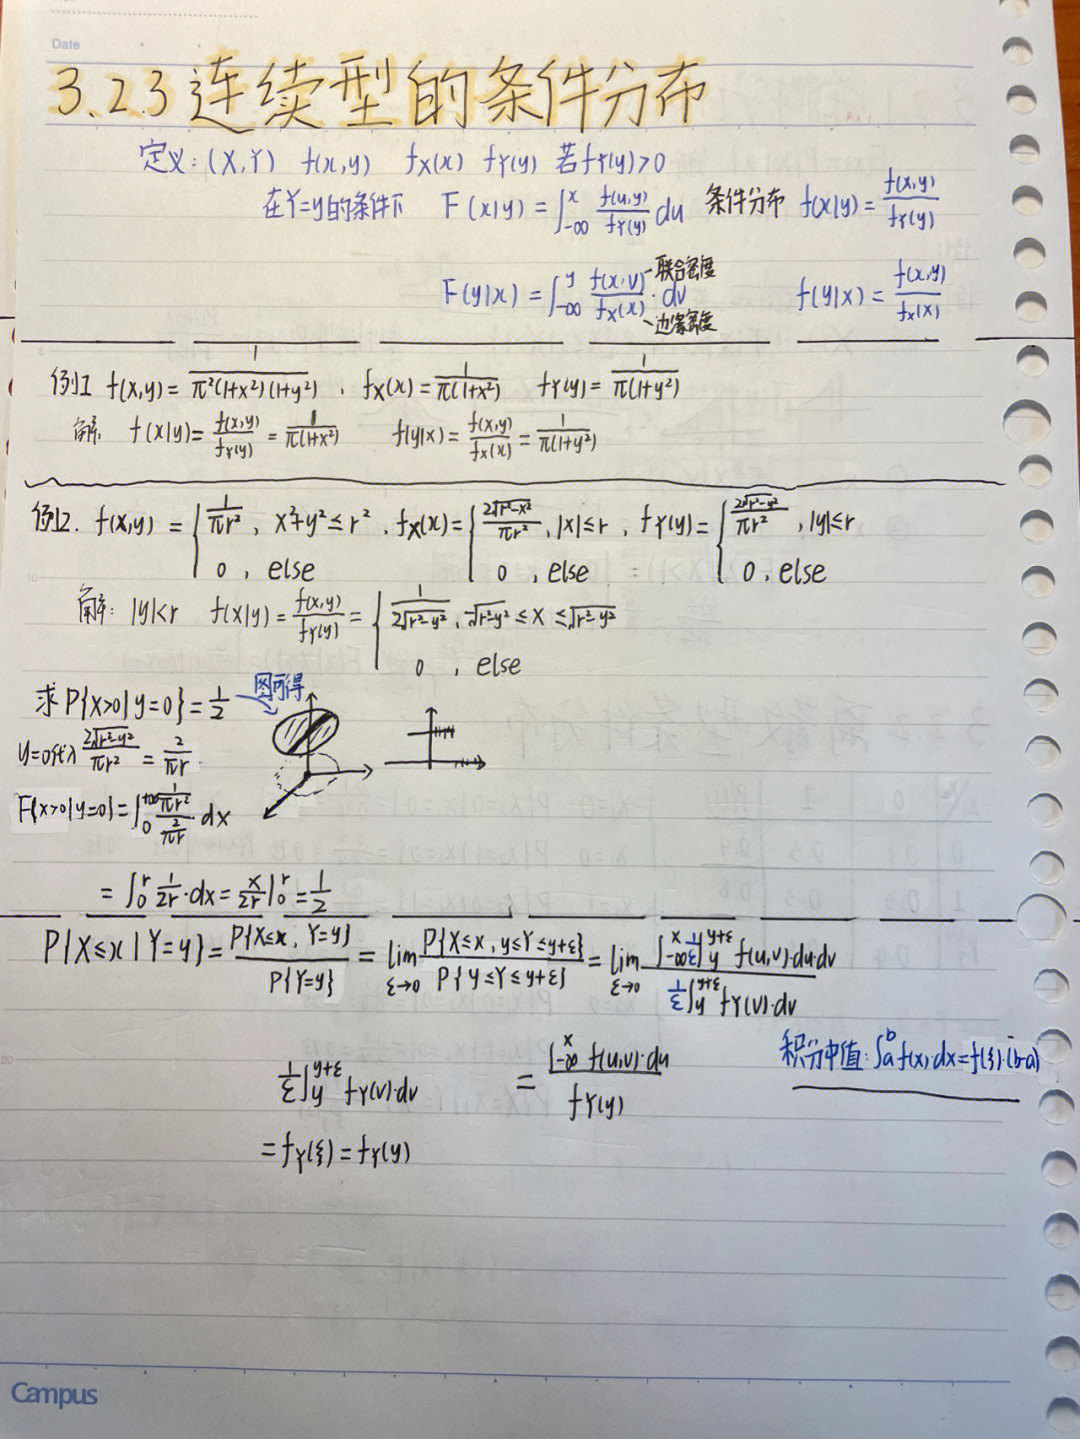 Date
3.2.3 连续型的条件分布
定义:(X,Y) f(x,y) fX(x) fY(y) 若fY(y)>0
在Y=y的条件下 F(x|y)=∫_{-∞}^{x} f(u,y)/fY(y) du 条件分布 f(x|y)=f(x,y)/fY(y)
F(y|x)=∫_{-∞}^{y} f(x,v)/fX(x)·dv 联合密度 边缘密度 f(y|x)=f(x,y)/fX(x)
例1 f(x,y)=1/(π²(1+x²)(1+y²)), fX(x)=1/(π(1+x²)) fY(y)=1/(π(1+y²))
解. f(x|y)=f(x,y)/fY(y)=1/(π(1+x²)) f(y|x)=f(x,y)/fX(x)=1/(π(1+y²))
例2. f(x,y)={1/(πr²), x²+y²≤r², fX(x)={2√(r²-x²)/(πr²), |x|≤r, fY(y)={2√(r²-y²)/(πr²), |y|≤r
0, else 0, else 0, else
解: |y|<r f(x|y)=f(x,y)/fY(y)={1/(2√(r²-y²)), -√(r²-y²)≤x≤√(r²-y²)
0, else
求P{X>0|y=0}=1/2 图可得
y=0代入 2√(r²-y²)/(πr²)=2/(πr)
F{x>0|y=0}=∫_{0}^{+∞} (1/(πr²))/(2/(πr)) dx
=∫_{0}^{r} 1/(2r)·dx=x/(2r)|_{0}^{r}=1/2
P{X≤x|Y=y}=P{X≤x,Y=y}/P{Y=y}=lim_{ε→0} P{X≤x,y≤Y≤y+ε}/P{y≤Y≤y+ε}=lim_{ε→0} ∫_{-∞}^{x} 1/ε ∫_{y}^{y+ε} f(u,v)·du·dv / (1/ε ∫_{y}^{y+ε} fY(v)·dv)
1/ε ∫_{y}^{y+ε} fY(v)·dv =∫_{-∞}^{x} f(u,v)·du / fY(y) 积分中值:∫_{a}^{b} f(x)·dx=f(ξ)·(b-a)
=fY(ξ)=fY(y)
Campus